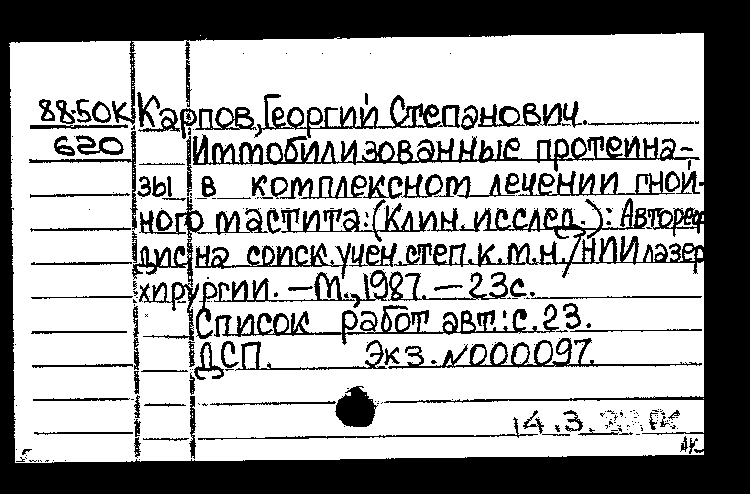 88-50К Карпов, Георгий Степанович.
620 Иммобилизованные протеина-
зы в комплексном лечении гной-
ного мастита: (Клин. исслед.): Автореф
дис на соиск. учен. степ. к.м.н. / НИИ лазер
хирургии. — М., 1987. — 23с.
Список работ авт.: с. 23.
ДСП. Экз. №000097.
14.3.
АК